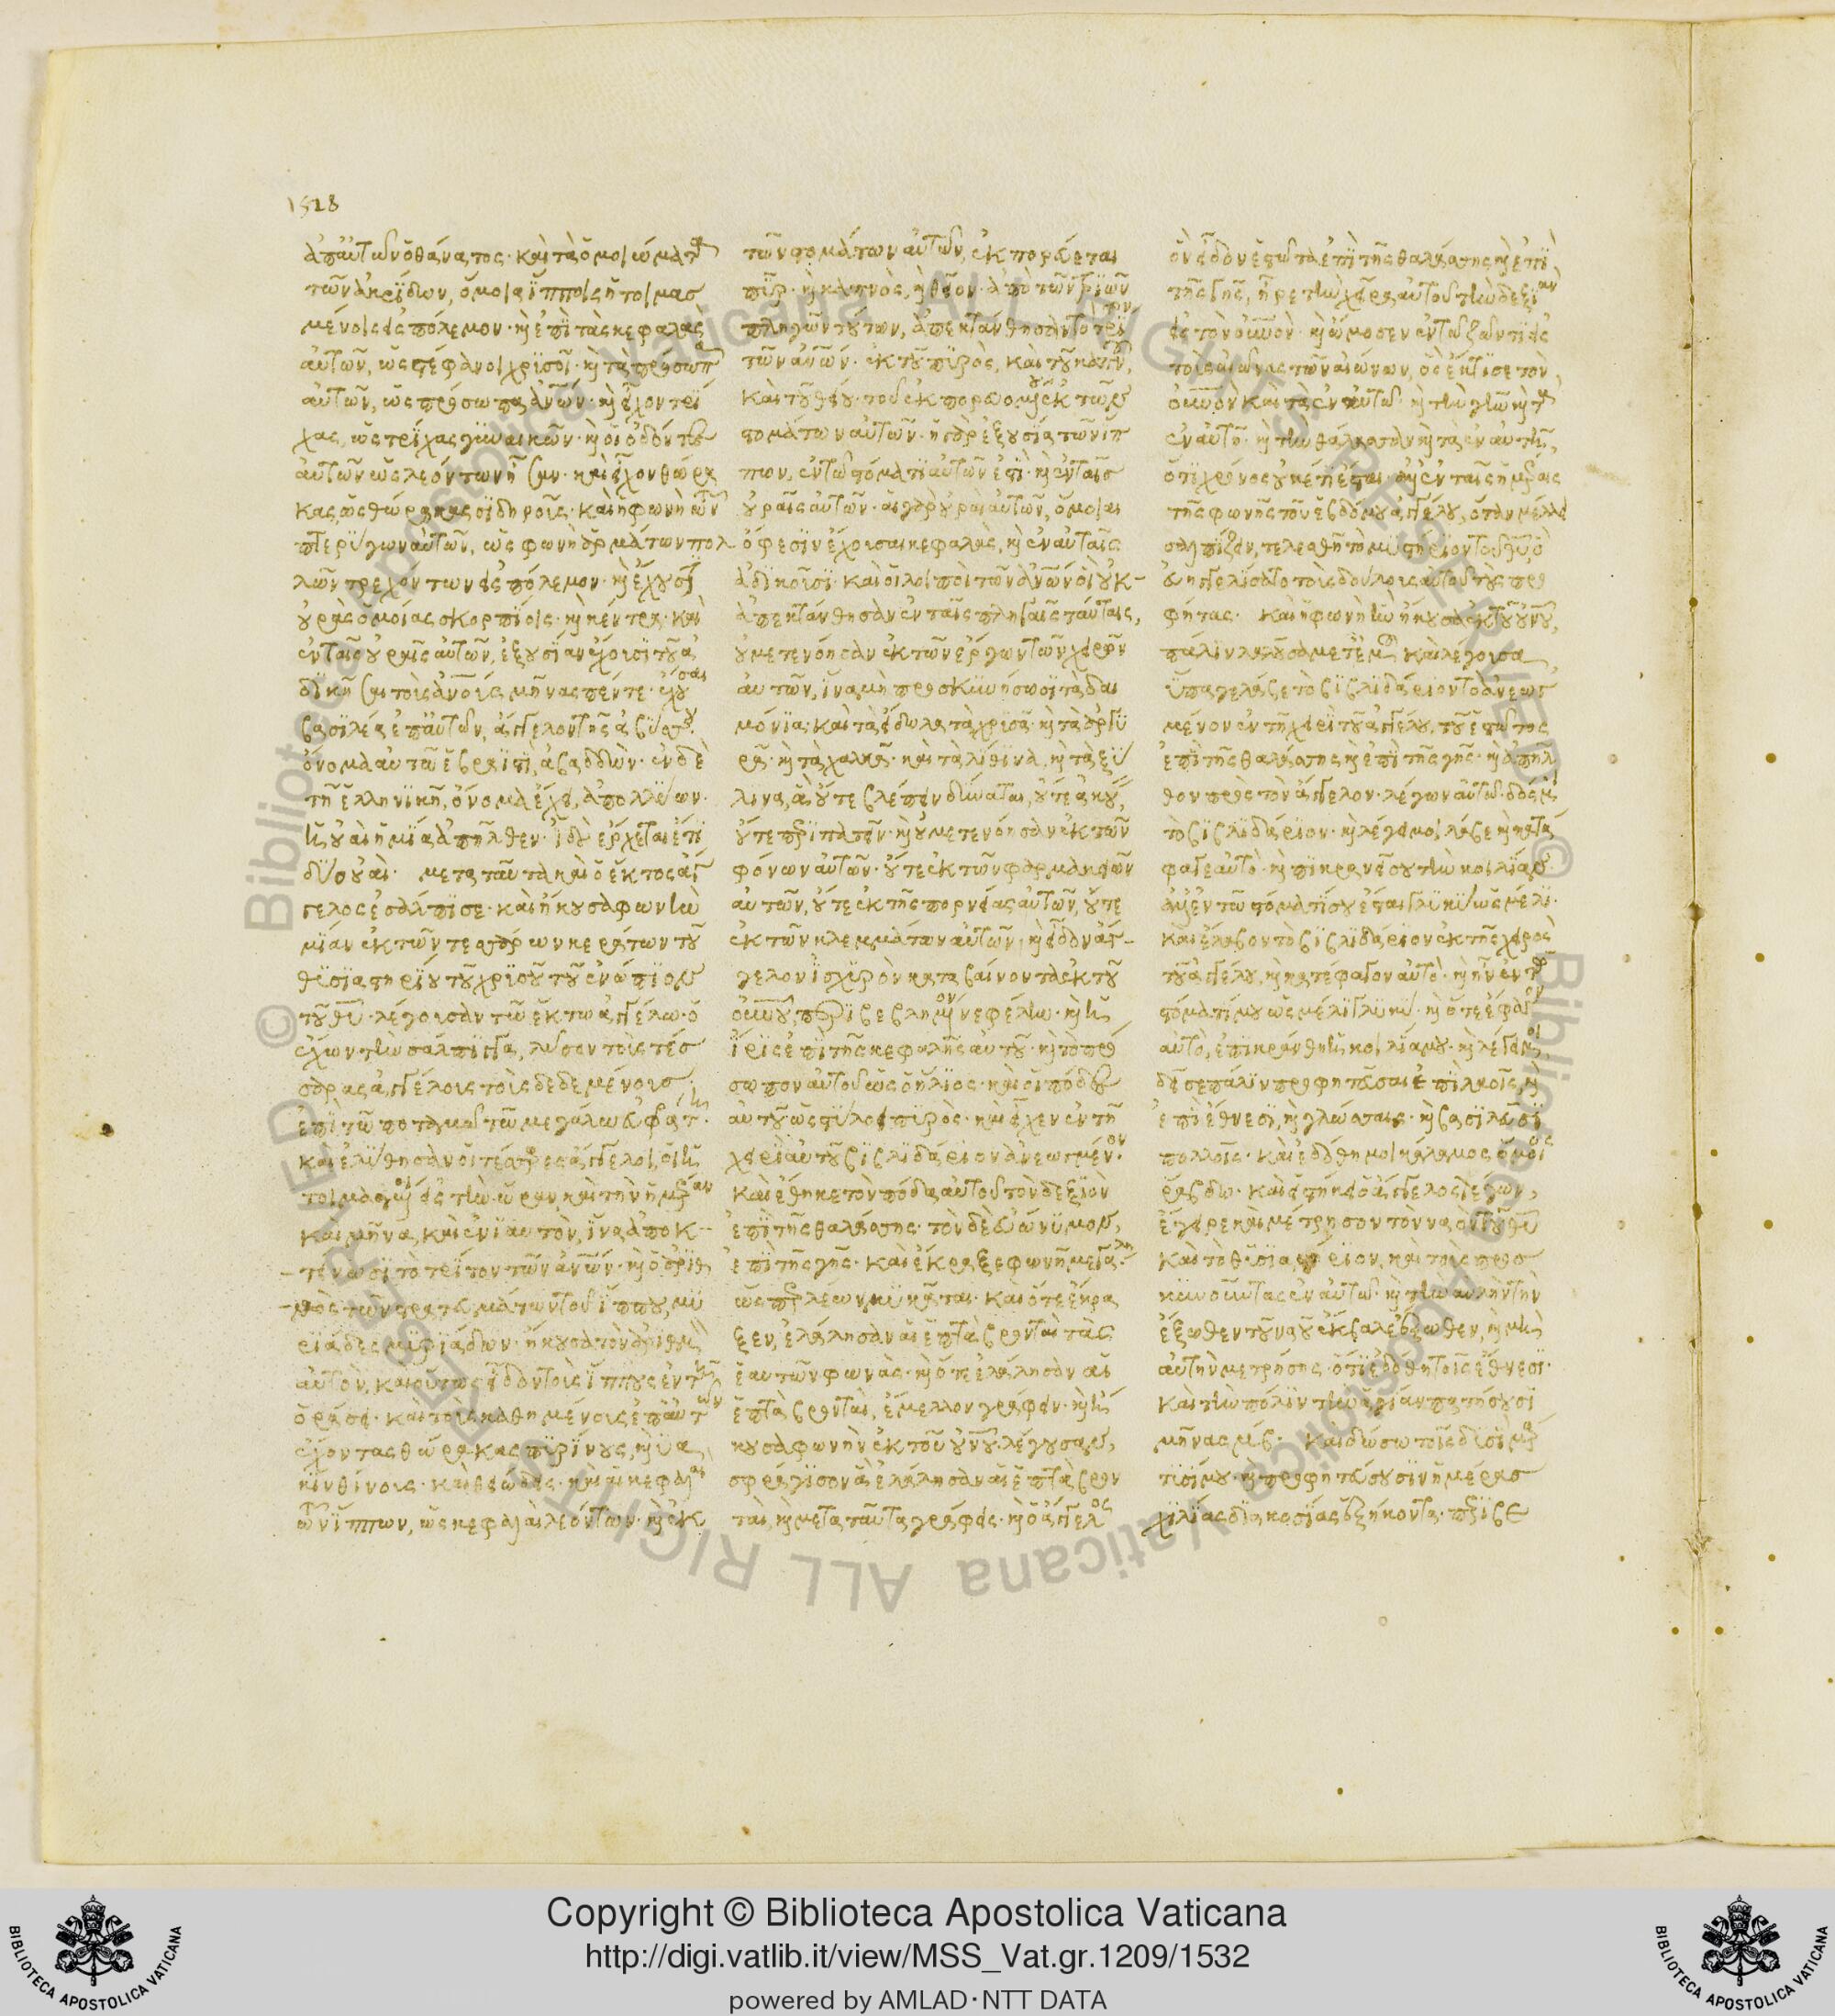 1528
ἀπ' αὐτῶν ὁ θάνατος· καὶ τὰ ὁμοιώματα
τῶν ἀκρίδων, ὅμοια ἵπποις ἡτοιμασ
μένοις εἰς πόλεμον· καὶ ἐπὶ τὰς κεφαλὰς
αὐτῶν, ὡς στέφανοι χρυσοῖ· καὶ τὰ πρόσωπα
αὐτῶν, ὡς πρόσωπα ἀνων· καὶ εἶχον τρί
χας, ὡς τρίχας γυναικῶν· καὶ οἱ ὀδόντες
αὐτῶν ὡς λεόντων ἦσαν· καὶ εἶχον θώρα
κας, ὡς θώρακας σιδηροῦς· καὶ ἡ φωνὴ τῶν
πτερύγων αὐτῶν, ὡς φωνὴ ἁρμάτων πολ
λῶν τρεχόντων εἰς πόλεμον· καὶ ἔχουσι
οὐρὰς ὁμοίας σκορπίοις· καὶ κέντρα· καὶ
ἐν ταῖς οὐραῖς αὐτῶν, ἐξουσίαν ἔχουσι τοῦ ἀ
δικῆσαι τοὺς ἀνους μῆνας πέντε· ἔχουσαι
βασιλέα ἐπ' αὐτῶν, ἄγγελον τῆς ἀβύσσου·
ὄνομα αὐτῶ ἑβραϊστὶ, ἀβαδδών· ἐν δὲ
τῇ ἑλληνικῇ, ὄνομα ἔχει, ἀπολλύων·
ἡ οὐαὶ ἡ μία ἀπῆλθεν· ἰδοὺ ἔρχεται ἔτι
δύο οὐαί· μετὰ ταῦτα καὶ ὁ ἕκτος ἄγ
γελος ἐσάλπισε· καὶ ἤκουσα φωνὴν
μίαν ἐκ τῶν τεσσάρων κεράτων τοῦ
θυσιαστηρίου τοῦ χρυσοῦ τοῦ ἐνώπιον
τοῦ θυ· λέγουσαν τῶ ἕκτω ἀγγέλω· ὁ
ἔχων τὴν σάλπιγγα, λῦσον τοὺς τέσ
σαρας ἀγγέλους τοὺς δεδεμένους
ἐπὶ τῶ ποταμῶ τῶ μεγάλω εὐφράτη·
καὶ ἐλύθησαν οἱ τέσσαρες ἄγγελοι, οἱ ἡ
τοιμασμένοι εἰς τὴν ὥραν καὶ τὴν ἡμέραν
καὶ μῆνα, καὶ ἐνιαυτὸν, ἵνα ἀποκ
τένωσι τὸ τρίτον τῶν ἀνων· καὶ ὁ ἀριθ
μὸς τῶν στρατευμάτων τοῦ ἵππου, μυ
ριάδες μυριάδων· ἤκουσα τὸν ἀριθμὸν
αὐτῶν, καὶ οὕτως ἶδον τοὺς ἵππους ἐν τῆ
ὁράσει· καὶ τοὺς καθημένους ἐπ' αὐτῶν
ἔχοντας θώρακας πυρίνους, καὶ ὑα
κινθίνους· καὶ θειώδεις· καὶ αἱ κεφαλαὶ
τῶν ἵππων, ὡς κεφαλαὶ λεόντων· καὶ ἐκ
τῶν στομάτων αὐτῶν, ἐκπορεύεται
πῦρ· καὶ καπνὸς, καὶ θεῖον· ἀπὸ τῶν τριῶν
πληγῶν τούτων, ἀπεκτάνθησαν τὸ τρίτον
τῶν ἀνων· ἐκ τοῦ πυρὸς, καὶ τοῦ καπνοῦ,
καὶ τοῦ θείου· τοῦ ἐκπορευομένου ἐκ τῶν
στομάτων αὐτῶν· ἡ γὰρ ἐξουσία τῶν ἵπ
πων, ἐν τῶ στόματι αὐτῶν ἐστὶ· καὶ ἐν ταῖς
οὐραῖς αὐτῶν· αἱ γὰρ οὐραὶ αὐτῶν, ὅμοιαι
ὄφεσιν ἔχουσαι κεφαλὰς, καὶ ἐν αὐταῖς
ἀδικοῦσι· καὶ οἱ λοιποὶ τῶν ἀνων οἳ οὐκ
ἀπεκτάνθησαν ἐν ταῖς πληγαῖς ταύταις,
οὐ μετενόησαν ἐκ τῶν ἔργων τῶν χειρῶν
αὐτῶν, ἵνα μὴ προσκυνήσωσι τὰ δαι
μόνια· καὶ τὰ εἴδωλα τὰ χρυσᾶ· καὶ τὰ ἀργυ
ρᾶ· καὶ τὰ χαλκᾶ· καὶ τὰ λίθινα, καὶ τὰ ξύ
λινα, ἃ οὔτε βλέπειν δύναται, οὔτε ἀκού,
οὔτε περιπατεῖν· καὶ οὐ μετενόησαν ἐκ τῶν
φόνων αὐτῶν· οὔτε ἐκ τῶν φαρμακειῶν
αὐτῶν, οὔτε ἐκ τῆς πορνείας αὐτῶν, οὔτε
ἐκ τῶν κλεμμάτων αὐτῶν· καὶ εἶδον ἄγ
γελον ἰσχυρὸν καταβαίνοντα ἐκ τοῦ
οὐνου, περιβεβλημένον νεφέλην· καὶ ἡ
ἶρις ἐπὶ τῆς κεφαλῆς αὐτοῦ· καὶ τὸ πρό
σωπον αὐτοῦ ὡς ὁ ἥλιος· καὶ οἱ πόδες
αὐτοῦ ὡς στύλοι πυρός· καὶ εἶχεν ἐν τῆ
χειρὶ αὐτοῦ βιβλιδάριον ἀνεωγμένον·
καὶ ἔθηκε τὸν πόδα αὐτοῦ τὸν δεξιὸν
ἐπὶ τῆς θαλάσσης· τὸν δὲ εὐώνυμον,
ἐπὶ τῆς γῆς· καὶ ἔκραξε φωνῆ μεγάλη
ὥσπερ λέων μυκᾶται· καὶ ὅτε ἔκρα
ξεν, ἐλάλησαν αἱ ἑπτὰ βρονταὶ τὰς
ἑαυτῶν φωνάς· καὶ ὅτε ἐλάλησαν αἱ
ἑπτὰ βρονταὶ, ἔμελλον γράφειν· καὶ ἤ
κουσα φωνὴν ἐκ τοῦ οὐνου λέγουσαν,
σφράγισον ἃ ἐλάλησαν αἱ ἑπτὰ βρον
ταὶ, καὶ μετὰ ταῦτα γράφεις· καὶ ὁ ἄγγελος
ὃν εἶδον ἑστῶτα ἐπὶ τῆς θαλάσσης καὶ ἐπὶ
τῆς γῆς, ἦρε τὴν χεῖρα αὐτοῦ τὴν δεξιὰν
εἰς τὸν οὐνον· καὶ ὤμοσεν ἐν τῶ ζῶντι εἰς
τοὺς αἰῶνας τῶν αἰώνων, ὃς ἔκτισε τὸν
οὐνον καὶ τὰ ἐν αὐτῶ· καὶ τὴν γῆν καὶ τὰ
ἐν αὐτῆ· καὶ τὴν θάλασσαν καὶ τὰ ἐν αὐτῆ,
ὅτι χρόνος οὐκέτι ἔσται· ἀλλ' ἐν ταῖς ἡμέραις
τῆς φωνῆς τοῦ ἑβδόμου ἀγγέλου, ὅταν μέλλει
σαλπίζειν, τελεσθῆ τὸ μυστήριον τοῦ θυ, ὃ
εὐηγγελίσατο τοὺς δούλους αὐτοῦ τοὺς προ
φήτας· καὶ ἡ φωνὴ ἣν ἤκουσα ἐκ τοῦ οὐνου,
πάλιν λαλοῦσα μετ' ἐμοῦ καὶ λέγουσα
ὕπαγε λάβε τὸ βιβλιδάριον τὸ ἀνεωγ
μένον ἐν τῆ χειρὶ τοῦ ἀγγέλου, τοῦ ἑστῶτος
ἐπὶ τῆς θαλάσσης καὶ ἐπὶ τῆς γῆς· καὶ ἀπῆλ
θον πρὸς τὸν ἄγγελον· λέγων αὐτῶ· δός μοι
τὸ βιβλιδάριον· καὶ λέγει μοι λάβε καὶ κατά
φαγε αὐτό· καὶ πικρανεῖ σου τὴν κοιλίαν
ἀλλ' ἐν τῶ στόματί σου ἔσται γλυκὺ ὡς μέλι·
καὶ ἔλαβον τὸ βιβλιδάριον ἐκ τῆς χειρὸς
τοῦ ἀγγέλου, καὶ κατέφαγον αὐτό· καὶ ἦν ἐν τῶ
στόματί μου ὡς μέλι γλυκύ· καὶ ὅτε ἔφαγον
αὐτὸ, ἐπικράνθη ἡ κοιλία μου· καὶ λέγει μοι,
δεῖ σε πάλιν προφητεῦσαι ἐπὶ λαοῖς, καὶ
ἐπὶ ἔθνεσι, καὶ γλώσσαις· καὶ βασιλεῦσι
πολλοῖς· καὶ ἐδόθη μοι κάλαμος ὅμοιος
ῥάβδω· καὶ εἱστήκει ὁ ἄγγελος λέγων,
ἔγειρε καὶ μέτρησον τὸν ναὸν τοῦ θυ
καὶ τὸ θυσιαστήριον, καὶ τοὺς προσ
κυνοῦντας ἐν αὐτῶ· καὶ τὴν αὐλὴν τὴν
ἔξωθεν τοῦ ναοῦ ἔκβαλε ἔξωθεν, καὶ μὴ
αὐτὴν μετρήσης· ὅτι ἐδόθη τοῖς ἔθνεσι·
καὶ τὴν πόλιν τὴν ἁγίαν πατήσουσι
μῆνας μβ· καὶ δώσω τοῖς δυσὶ μάρ
τυσί μου· καὶ προφητεύσουσιν ἡμέρας
χιλίας διακοσίας ἑξήκοντα· περιβε
Copyright © Biblioteca Apostolica Vaticana
http://digi.vatlib.it/view/MSS_Vat.gr.1209/1532
powered by AMLAD·NTT DATA
BIBLIOTECA APOSTOLICA VATICANA
BIBLIOTECA APOSTOLICA VATICANA